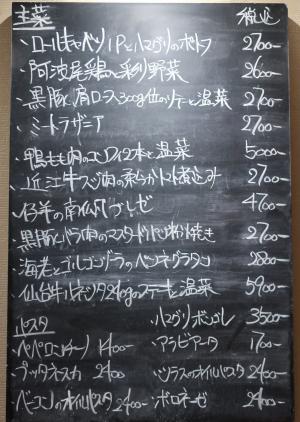 主菜 税込
・ロールキャベツ1Pとハマグリのポトフ 2700-
・阿波尾鶏と彩り野菜 2600-
・黒豚肩ロース300g位のソテーと温菜 2700-
・ミートラザニア 2700-
・鴨もも肉のコンフィ2本と温菜 5000-
・近江牛スジ肉の柔らかトマト煮込み 2700-
・仔羊の南仏ブレゼ 4700-
・黒豚バラ肉のマスタードパン粉焼き 2700-
・海老とゴルゴンゾーラのペンネグラタン 2800-
・仙台牛ルネッタ240gのステーキと温菜 5900-
パスタ ・ハマグリボンゴレ 3500-
・ペペロンチーノ 1400- ・アラビアータ 1700-
・プッタネスカ 2400 ・シラスのオイルパスタ 2400-
・ベーコンのオイルパスタ 2400- ・ボロネーゼ 2400-